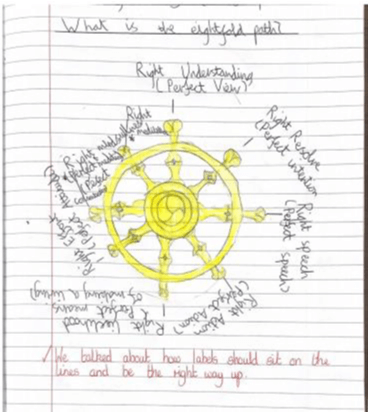 What is the eightfold path?
Right Understanding
(Perfect View)
Right Resolve
(Perfect intention
Right speech
(Perfect speech)
Right Action
(Perfect Action)
Right livelihood
& Perfect means
of making a living)
Right Effort
Right
We talked about how labels should sit on the
lines and be the right way up.